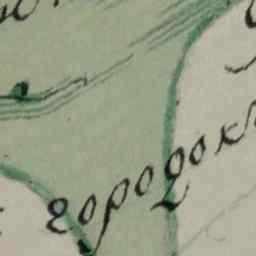 городок